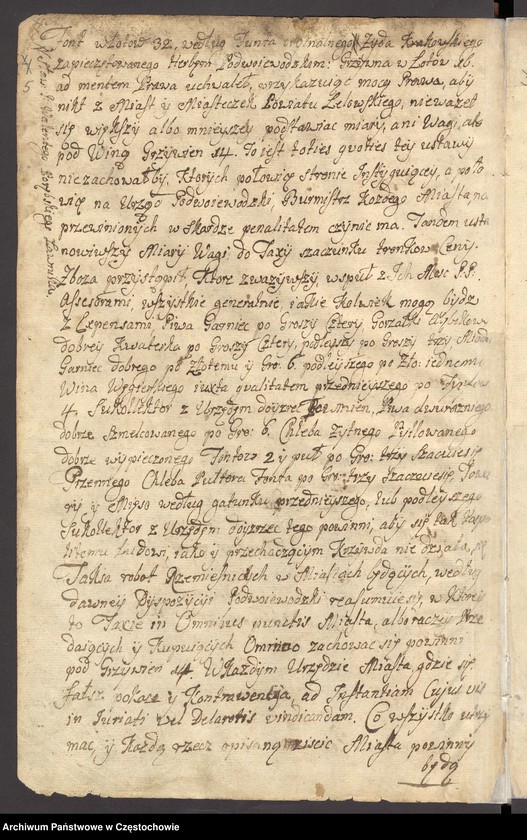 Font włotow 32, według Funta Żyda Krakowskiego
zapieczętowanego Herbem Podwoiewodzkim: Grzywna w Łotow 16.
ad mentem Prawa uchwałeł, przykazuiąc mocą Prawa, aby
nikt z Miast y Miasteczek Powiatu Lelowskiego, nieważeł
się większy albo mnieyszey podstawiac miary, ani Wagi, ale
pod Winą Grzywien 14. To iest toties quoties tey ustawy
niezachowałby, Ktorych połowicę stronie Instyguiące, a poło
wicę na Urząd Podwoiewodzki, Burmistrz Kożdego Miasta, na
przewinionych w skardze penalitatem czynic ma. Tandem usta
nowiwszy Miary Wagi do Taxy szacunku tronkow Ceny,
Zboża porzystąpił Ktore zważywszy, wspuł z Ich Mość P.P.
Assesorami, wszystkie generalnie, iakie Kolwiek mogą bydz
z Expensami, Piwa Garniec po Groszy Cztery, Gorzałki
dobrey Kwaterka po Groszy Cztery, podłeyszy po Groszy trzy, Miodu
Garniec dobrego po złotemu y Gro: 6. podłeyszego po Zło: iednemu
Wina Węgierskiego iuxta qualitatem przednieyszego po
4. Sukollektor z Urzędem doyrzeć Powinien, Piwa dwuraźniego
dobrze Szmelcowanego po Gro: 6. Chleba Żytnego Pytlowanego
dobrze wypieczonego Fontow 2 y puł po Gro: trzy Szacuie się
Przennego Chleba Pułtora Fonta po Gro: trzy Szacuie się,
y Mięso według gatunku przednieyszego, lub podłeyszego
Sukollektor z Urzędem doyrzec tego powinni, aby się tak
litemu Ludowi, iako y przechaczącym Krzywda nie działa się
Taksa robot Rzemieśniczych w Miastach będących, według
dawney Dyspozycyi Podwoiewodzki reasumuie się, w Ktorey
to Taxie in Omnibus punctis Miasta, albo raczey Prze
daiących y Kupuiących Omnino zachować się powinni
pod Grzywien 14. W Każdym Urzędzie Miasta gdzie się
fałsz pokaże y Kontrawencya, ad Instantiam Cujus vis
in Iuriati vel Delatoris vindicandam. Co wszystko
mac, y Kożdą rzecz opisaną ziscic Miasta powinny
będą
Archiwum Państwowe w Częstochowie